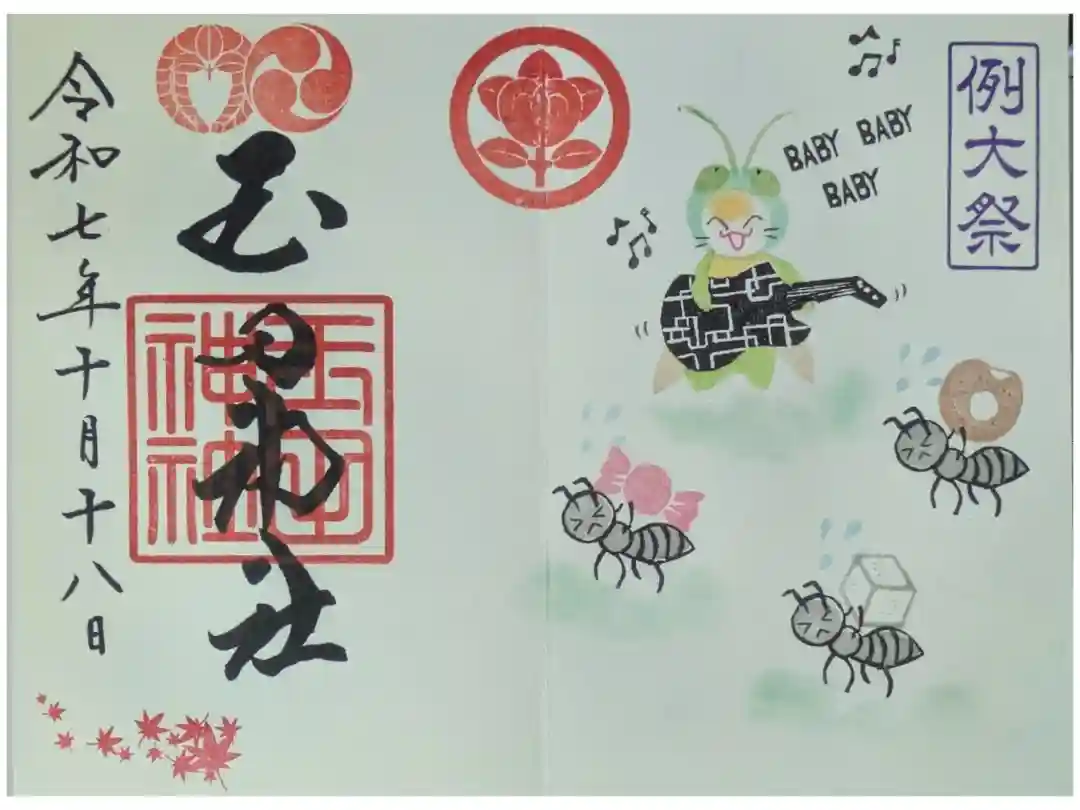 例大祭
BABY BABY
BABY
玉田神社
令和七年十月十八日
玉田
神社